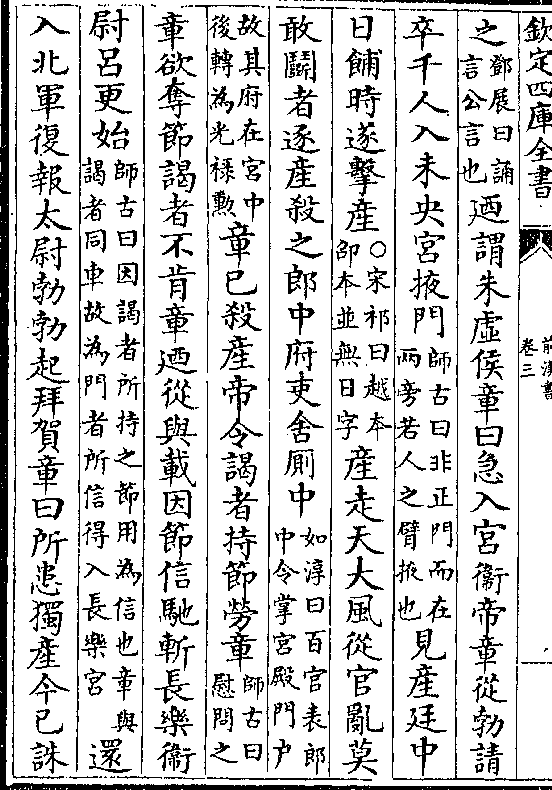 欽定四庫全書
前漢書
卷三
之鄧展曰誦言公言也廼謂朱虛侯章曰急入宮衞帝章從勃請
卒千人入未央宮掖門師古曰非正門而在兩旁若人之臂掖也見產廷中
日餔時遂擊產○宋祁曰越本邵本並無日字產走天大風從官亂莫
敢鬭者逐產殺之郎中府吏舍厠中如淳曰百官表郎中令掌宮殿門户
故其府在宮中後轉為光祿勲章已殺產帝令謁者持節勞章師古曰慰問之
章欲奪節謁者不肯章廼從與載因節信馳斬長樂衞
尉呂更始師古曰因謁者所持之節用為信也章與謁者同車故為門者所信得入長樂宮還
入北軍復報太尉勃勃起拜賀章曰所患獨產今已誅